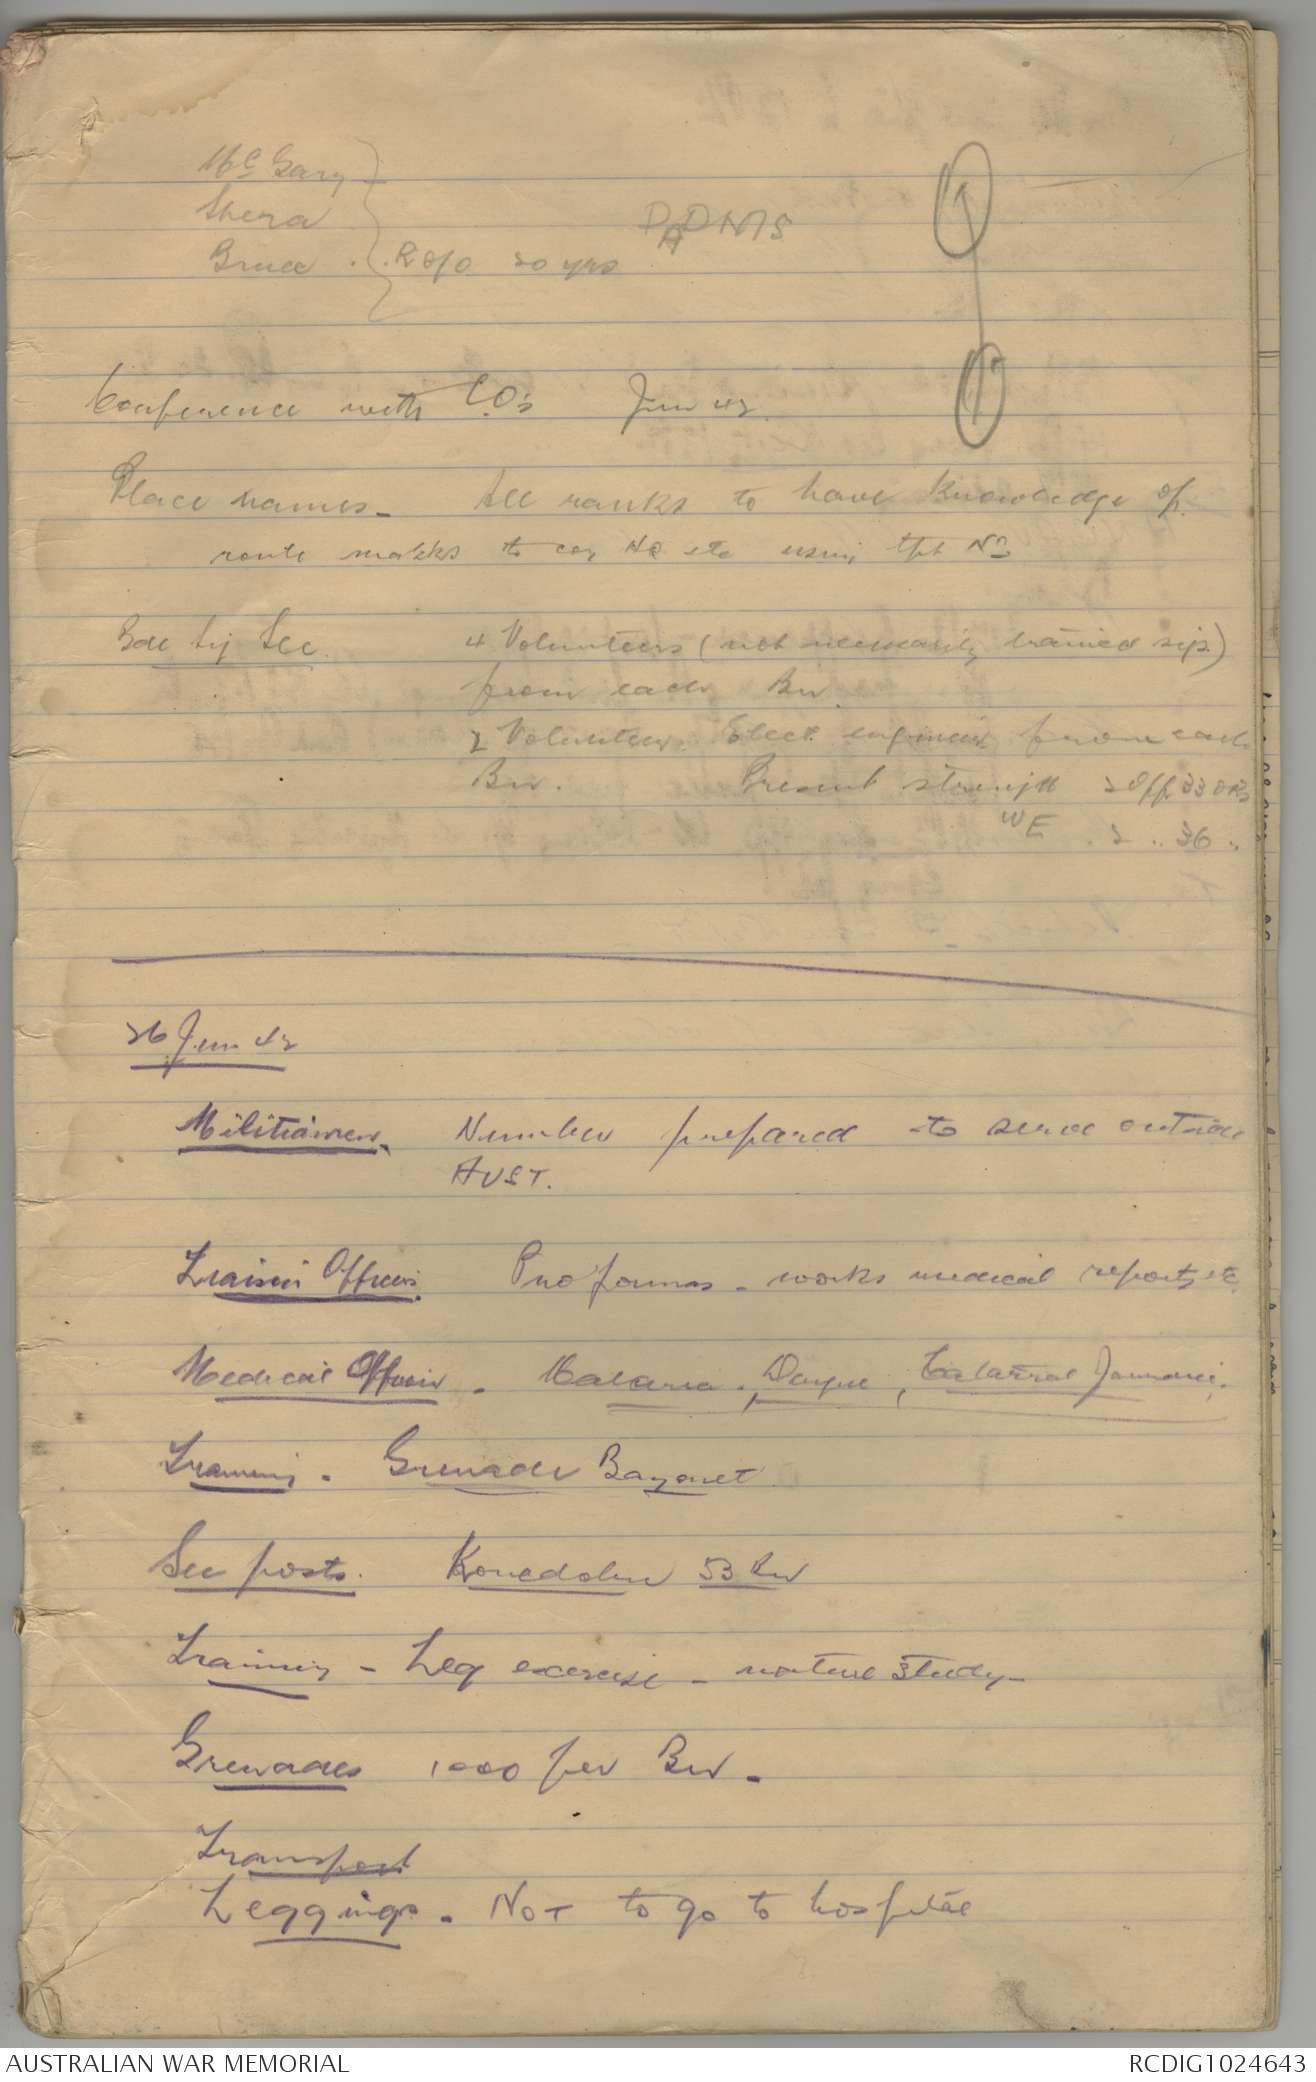 McGary
Shera
DADMS
Bruce . . R of O 20 yrs
Conference with C.O's Jun 42.
Place names - All ranks to have knowledge of
route marks to coy HQ etc using tpt Nos
Bde Sig Sec. 4 Volunteers (not necessarily trained sigs)
from each Bn
2 Volunteer Elect. engineers from each
Bn. Present strength 2 Off 33 ORs
WE . 2 .. 36 "
26 Jun 42
Militiamen. Number prepared to serve outside
AUST.
Liaison Officers. Pro formas - works medical reports etc.
Medical Officer - Malaria, Dengue, Catarrhal Jaundice.
Training - Grenade Bayonet
Sec posts. Konedobu 53 Bn
Training - Leg exercise - nature study -
Grenades 1000 per Bn -
Transport
Leggings - NOT to go to hospital
AUSTRALIAN WAR MEMORIAL
RCDIG1024643